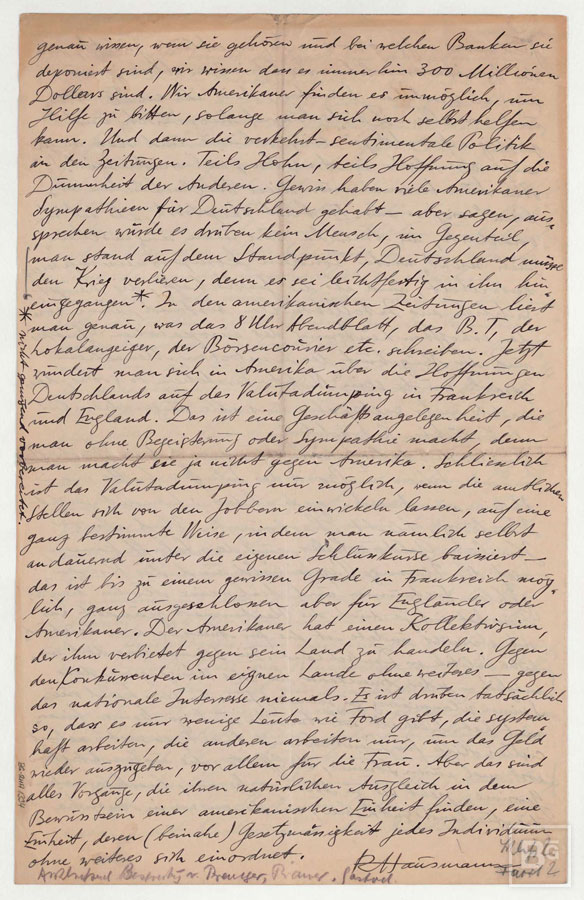 genau wissen, wem sie gehören und bei welchen Banken sie
deponiert sind, wir wissen dass es immerhin 300 Millionen
Dollars sind. Wir Amerikaner finden es unmöglich, um
Hilfe zu bitten, solange man sich noch selbst helfen
kann. Und dann die verkehrt-sentimentale Politik
in den Zeitungen. Teils Hohn, teils Hoffnung auf die
Dummheit der Anderen. Gewiss haben viele Amerikaner
Sympathieen für Deutschland gehabt — aber sagen, aus-
sprechen würde es drüben kein Mensch, im Gegenteil,
man stand auf dem Standpunkt, Deutschland müsse
den Krieg verlieren, denn es sei leichtfertig in ihn hin-
eingegangen*. In den amerikanischen Zeitungen liest
man genau, was das 8 Uhr Abendblatt, das B.T., der
Lokalanzeiger, der Börsencourier etc. schreiben. Jetzt
wundert man sich in Amerika über die Hoffnungen
Deutschlands auf das Valutadumping in Frankreich
und England. Das ist eine Geschäftsangelegenheit, die
man ohne Begeisterung oder Sympathie macht, denn
man macht sie ja nicht gegen Amerika. Schliesslich
ist das Valutadumping nur möglich, wenn die amtlichen
Stellen sich von den Jobbern einwickeln lassen, auf eine
ganz bestimmte Weise, indem man nämlich selbst
andauernd unter die eigenen Schlusskurse baissiert —
das ist bis zu einem gewissen Grade in Frankreich mög-
lich, ganz ausgeschlossen aber für Engländer oder
Amerikaner. Der Amerikaner hat einen Kollektivsinn,
der ihm verbietet gegen sein Land zu handeln. Gegen
den Konkurrenten im eignen Lande ohne weiteres — gegen
das nationale Interesse niemals. Es ist drüben tatsächlich
so, dass es nur wenige Leute wie Ford gibt, die system
haft arbeiten, die anderen arbeiten nur, um das Geld
wieder auszugeben, vor allem für die Frau. Aber das sind
alles Vorgänge, die ihren natürlichen Ausgleich in dem
Bewusstsein einer amerikanischen Einheit finden, eine
Einheit, deren (beinahe) Gesetzmässigkeit jedes Individuum
ohne weiteres sich einordnet.
R. Hausmann
* nicht genügend vorbereitet.
BG